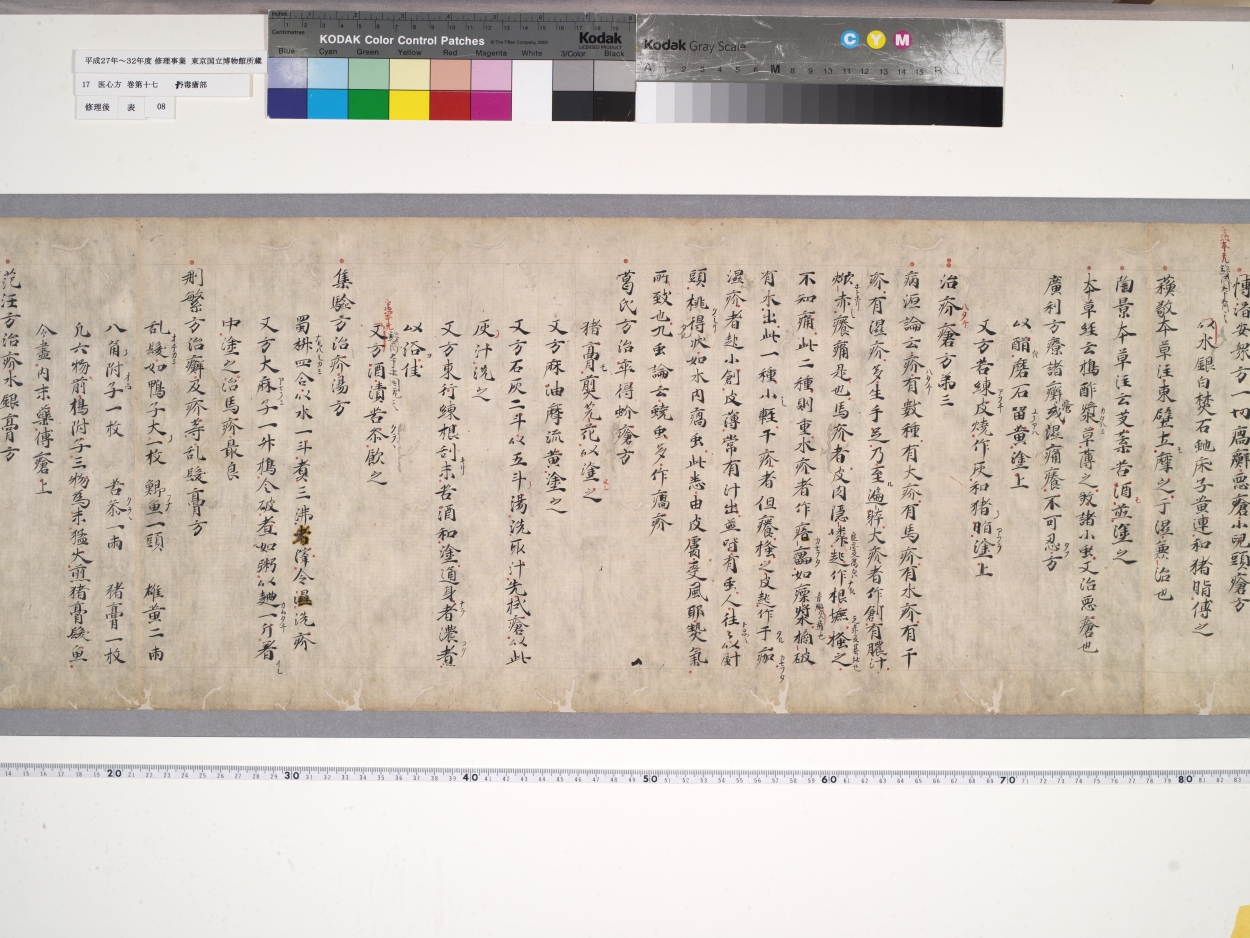 平成27年～32年度 修理事業 東京国立博物館所蔵
17 医心方 巻第十七 丹毒瘡部
修理後 表 08
KODAK Color Control Patches
© The Tiffen Company, 2000
Kodak
LICENSED PRODUCT
Inches
Centimetres
Blue Cyan Green Yellow Red Magenta White 3/Color Black
Kodak Gray Scale
C Y M
A 1 2 3 4 5 6 M 8 9 10 11 12 13 14 15 B
博済安衆方一切癘癬悪瘡小児頭瘡方
以水銀白樊石虵床子黄連和猪脂傅之
蘓敬本草注東壁土摩之干湿𤻝治也
陶景本草注云芰菜苦酒並塗之
本草経云搗酢漿草薄之敷諸小虫又治悪瘡也
廣利方療諸癬或湿痛癢不可忍方
以醋磨石留黄塗上
又方若練皮焼作灰和猪脂塗上
治疥瘡方第三
病源論云疥有數種有大疥有馬疥有水疥有干
疥有濕疥多生手足乃至遍躰大疥者作創有膿汁
焮赤癢痛是也馬疥者皮肉隠嶙起作根墌掻之
不知痛此二種則重水疥者作㾦瘰如瘭漿摘破
有水出此一種小軽干疥者但癢掻之皮起作干痂
濕疥者起小創皮薄常有汁出並皆有虫人往々以針
頭桃得状如水内癘虫此悉由皮膚受風耶熱氣
所致也九虫論云蟯虫多作癘疥
葛氏方治卒得疥瘡方
猪膏煎芫花以塗之
又方麻油摩流黄塗之
又方石灰二斗以五斗湯洗取汁先拭瘡以此
灰汁洗之
又方東行練根刮末苦酒和塗通身者濃煮
以浴佳
又方酒漬苦参飲之
集驗方治疥湯方
蜀椒四合以水一斗煮三沸去滓令温洗疥
又方大麻子一升搗令破煮如粥以麺一斤者
中塗之治馬疥最良
刪繁方治癬及疥等乱髪膏方
乱髪如鴨子大一枚 鯽魚一頭 雄黄二両
八角附子一枚 苦参一両 猪膏一枚
凡六物煎搗附子三物為末猛火煎猪膏髪魚
令盡内末藥傅瘡上
范汪方治疥水銀膏方
20 30 40 50 60 70 80